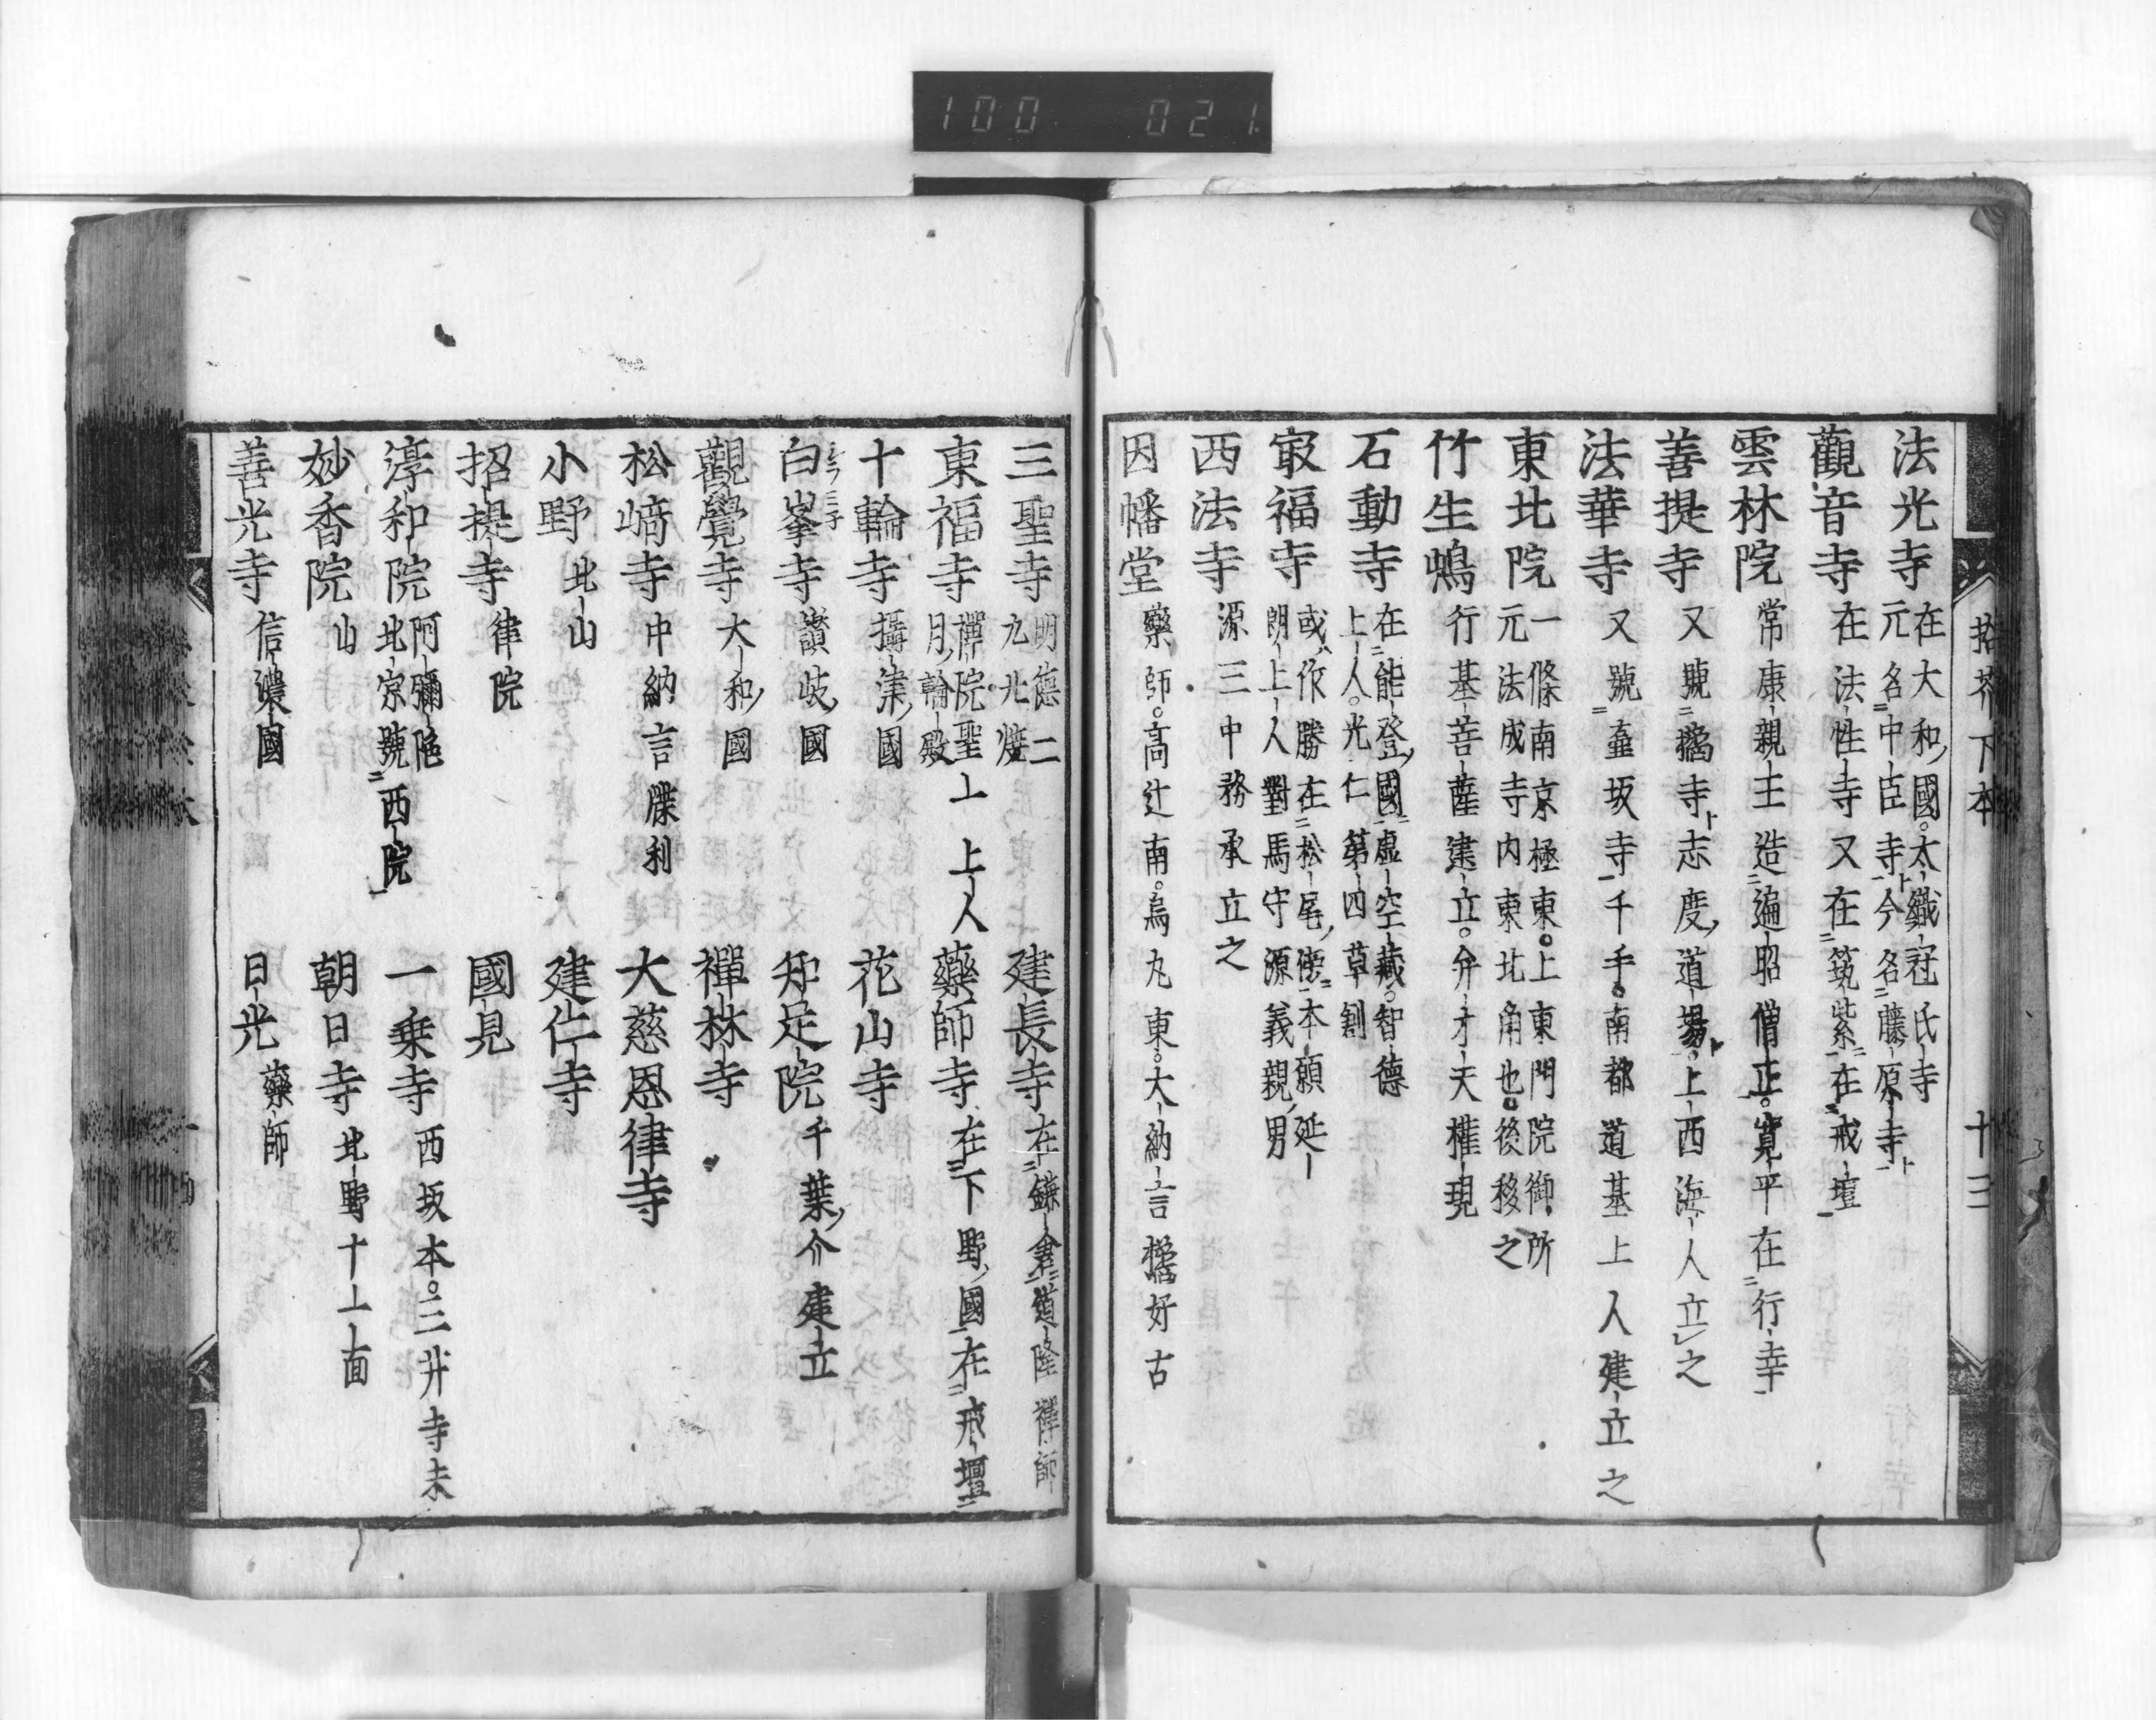 100 021
拾芥下本 十三
法光寺 在大和國。太織冠氏寺
元名中臣寺今名藤原寺
觀音寺 在法性寺又在筑紫在戒壇
雲林院 常康親王造遍昭僧正。寛平在行幸
善提寺 又號 寺志度道場。上西海人立之
法華寺 又號 坂寺千手。南都道基上人建立之
東北院 一條南京極東。上東門院御所
元法成寺内東北角也。後移之
竹生嶋 行基菩薩建立。弁才天權現
石動寺 在能登國虛空藏。智德
上人。光仁第四草創
㝡福寺 或作勝在松尾 本願延
朗上人對馬守源義親男
西法寺 源三中務承立之
因幡堂 藥師。高辻南。烏丸東。大納言橘好古
三聖寺 明德二
九北燒
建長寺 在鎌倉道隆禪師
東福寺 禪院聖上上人
月輪殿
藥師寺 在下野國在戒壇
十輪寺 攝津國
花山寺
白峯寺 讃岐國
知足院 千葉介建立
觀覺寺 大和國
禪林寺
松﨑寺 中納言保利
大慈恩律寺
小野 北山
建仁寺
招提寺 律院
國見
淳和院 阿彌陁
北京號西院
一乗寺 西坂本。三井寺末
妙香院 山
朝日寺 北野十一面
善光寺 信濃國
日光 藥師